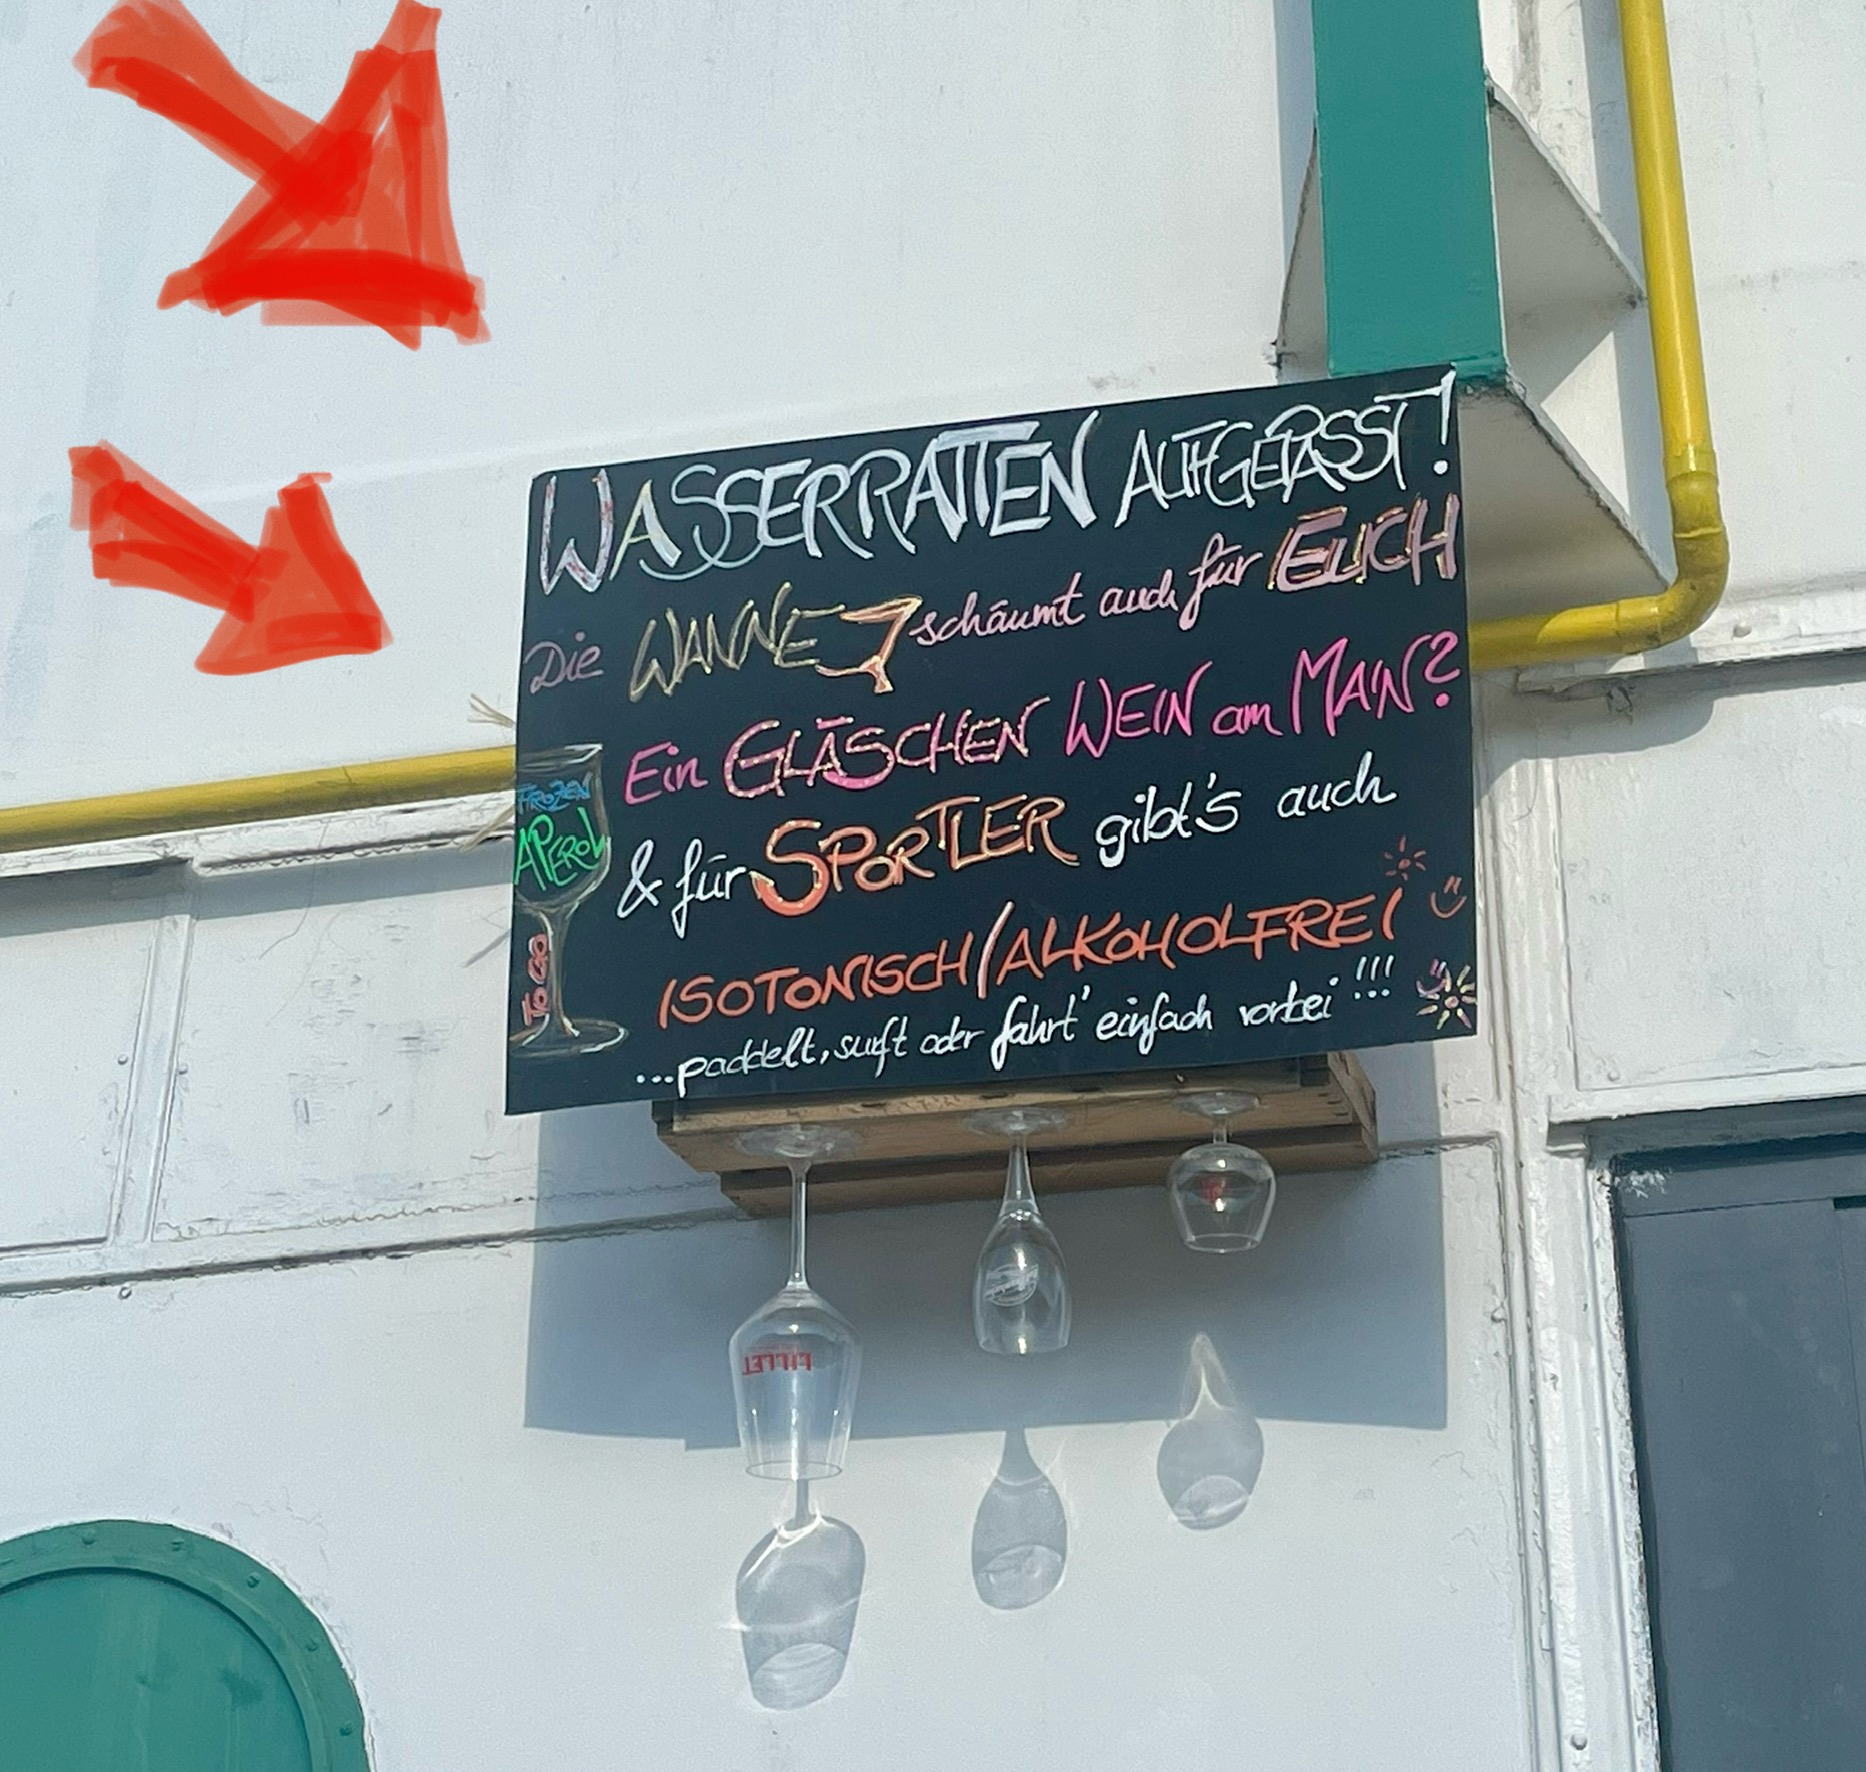 WASSERRATTEN AUFGEPASST!
Die WANNE schäumt auch für EUCH
Ein GLÄSCHEN WEIN am MAIN?
& für SPORTLER gibt's auch
ISOTONISCH/ALKOHOLFREI
...paddelt, surft oder fahrt' einfach vorbei!!!
FROZEN
APEROL
TO GO
LILLET